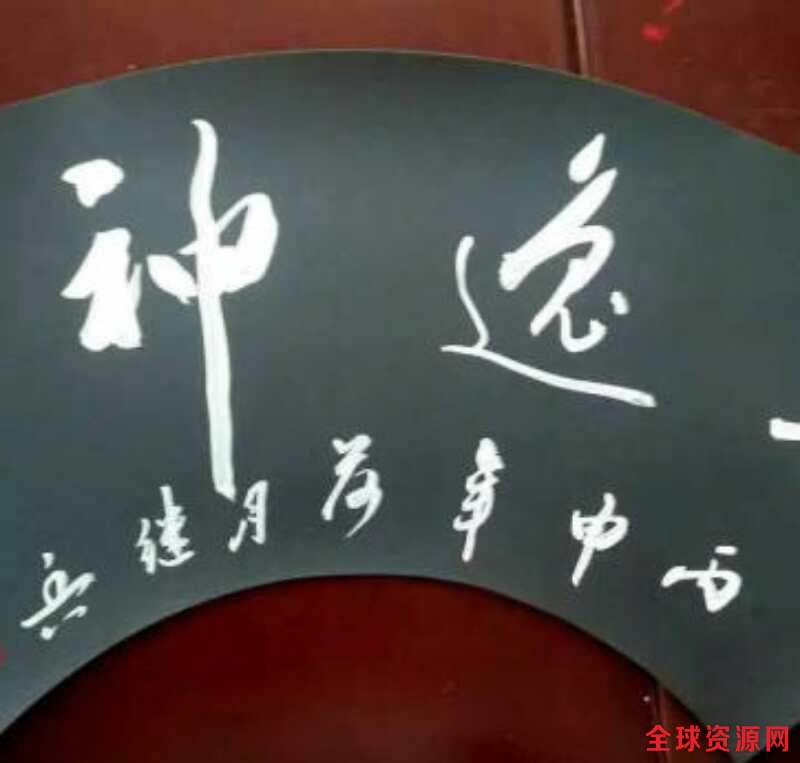 逸神
丙申年荷月继兵
全球资源网